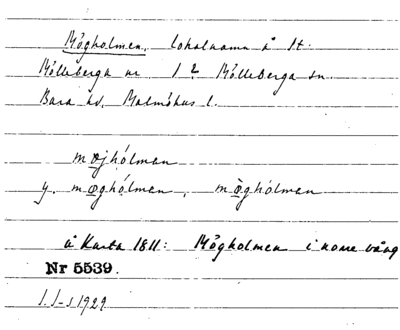 Mögholmen, lokalnamn å It.
Mölleberga nr 1 2 Mölleberga sn.
Bara hd, Malmöhus l.
møjhólman
y. møghólman, mø̀ghólman
å Karta 1811: Mögholmen i norre vång
Nr 5539.
1929